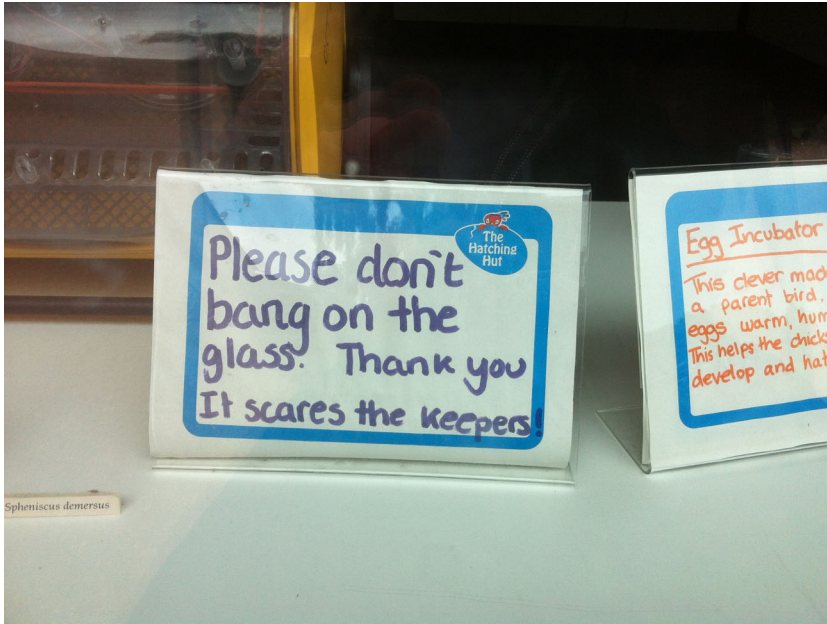 The
Hatching
Hut
Please don't
bang on the
glass. Thank you
It scares the keepers!
Egg Incubator
This clever mac
a parent bird,
eggs warm, hum
This helps the chick
develop and hat
Spheniscus demersus